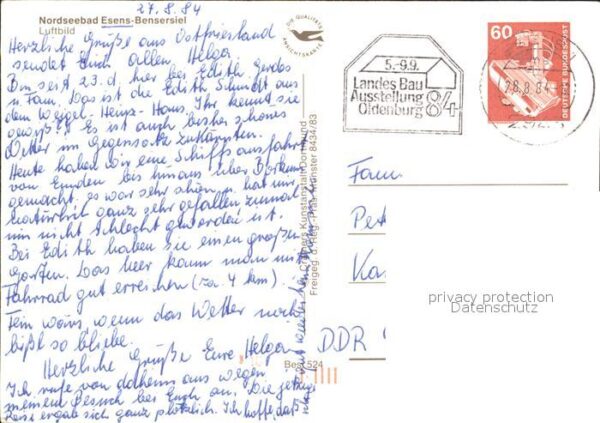 27.8.84
Nordseebad Esens-Bensersiel
Luftbild
Herzliche Grüße aus Ostfriesland
sendet Euch allen Helga
Bin seit 23.d. hier bei Edith Gerdes
u. Fam. Das ist die Edith Schmidt aus
dem Haus Ihr kennt sie
gewiß? Es ist auch bisher schönes
Wetter im Gegensatz zu
Heute haben wir eine Schiffsausfahrt
von Emden bis hinaus über Borkum
gemacht. es war sehr schön u. hat mir
ganz sehr gefallen zumal
mir nicht schlecht geworden ist.
Bei Edith haben sie einen großen
Garten. Das Meer kann man mit
Fahrrad gut erreichen (ca. 4 km).
Fein wärs, wenn das Wetter noch
bißl so bliebe.
Herzliche Grüße Eure Helga
Ich rufe von daheim aus wegen
meinem Besuch bei Euch an. Die jetzige
Reise ergab sich ganz plötzlich. Ich hoffe, daß
DIE QUALITÄTS
ANSICHTSKARTE
Kunstanstalt Dortmund
Freigeg. d. Reg.-Präs. Münster 8434/83
Best 524
5.-9.9.
Landes Bau
Ausstellung
Oldenburg 84
28.8.84
60
DEUTSCHE BUNDESPOST
Fam.
Pet
Ka
DDR
privacy protection
Datenschutz